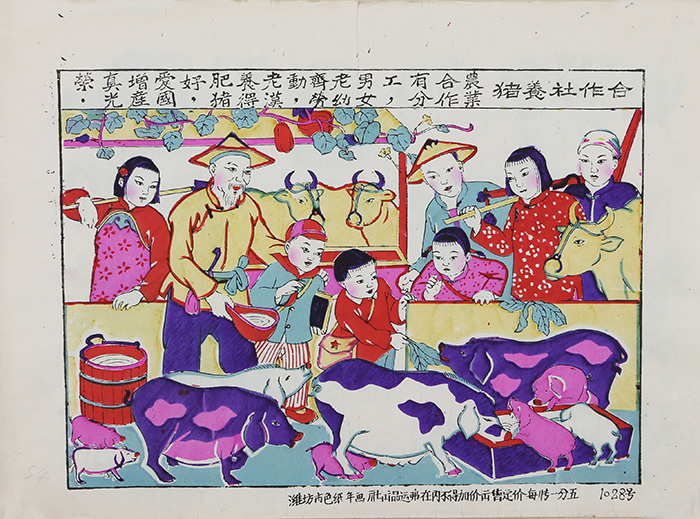 合作社養猪
農業合作有分工，男女老幼齊勞動．老漢養得肥猪好，愛國增產真光榮．
濰坊市色紙年画社出品运弗在内不得加价出售定价每张一分五
1028号